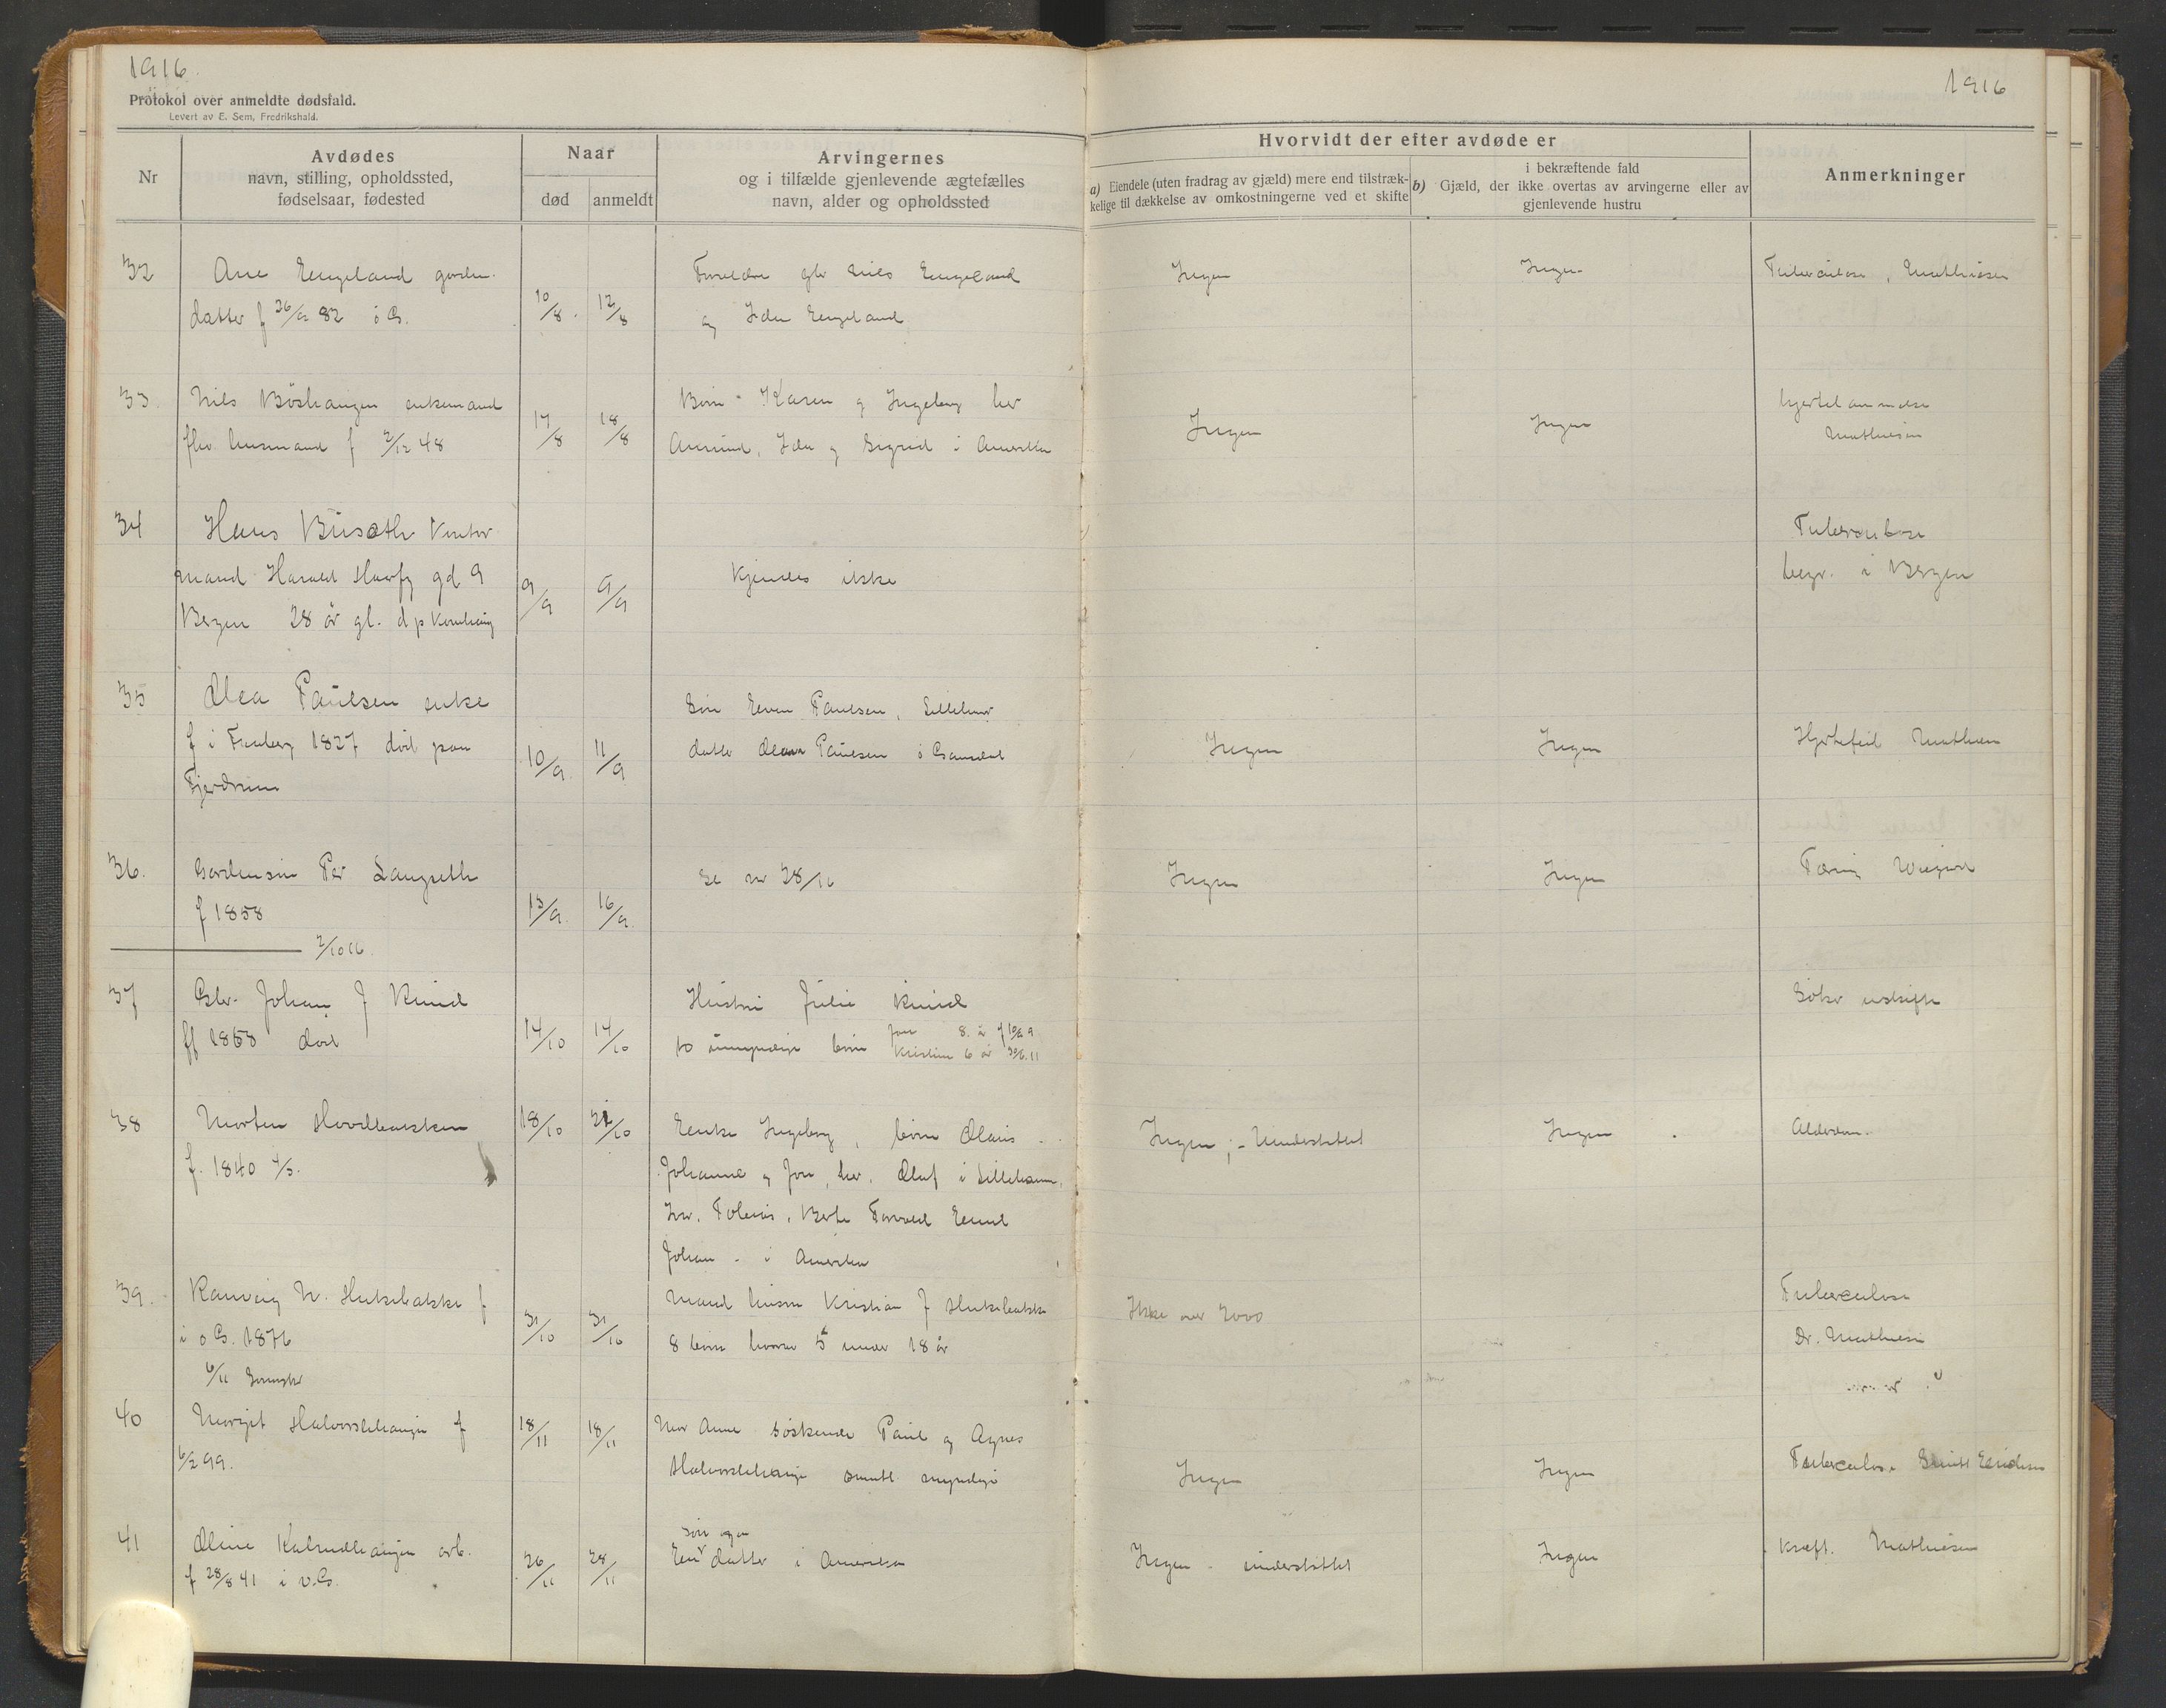 1916.
Protokol over anmeldte dødsfald.
Levert av E. Sem, Fredrikshald.
1916
Nr
Avdødes
navn, stilling, opholdssted,
fødselsaar, fødested
Naar
død
anmeldt
Arvingernes
og i tilfælde gjenlevende ægtefælles
navn, alder og opholdssted
Hvorvidt der efter avdøde er
a) Eiendele (uten fradrag av gjæld) mere end tilstræk-
kelige til dækkelse av omkostningerne ved et skifte
i bekræftende fald
b) Gjæld, der ikke overtas av arvingerne eller av
gjenlevende hustru
Anmerkninger
32
Ane Engeland
datter f 82 i G.
10/8. 12/8
Forældre Nils Engeland
og Iden Engeland
Ingen
Ingen
Tuberculose, Mathiesen
33.
Nils Bøshaugen enkemand
husmand f 2/12 48
17/8 18/8
Børn Karen og Ingeborg her
Amund, Iden og Sigrid i Amerika
Ingen
Ingen
hjertelammelse
Mathiesen
34
Hans Busæth Kontor
mand Harald Haarfg gd 9
Bergen 28 år gl. d p
9/9 9/9
Kjendes ikke
Tuberculose
begr. i Bergen
35
Olea Paulsen enke
f i 1827 død paa
Fjerdrum
10/9 11/9
Søn Even Paulsen,
datter Paulsen i Gausdal
Ingen
Ingen
Hjertefeil Mathiesen
36.
Gardmann Per Langseth
f 1858
13/9. 16/9.
Se nr 28/16
Ingen
Ingen
Tæring
2/10 16.
37
Gbr. Johan J Kruid
ff 1868 død
14/10 14/10
Hustru Julie Kruid
to umyndige børn Jon 8 år f 10/2 9
Kristine 6 år 11
Søker uskifte
38
Morten Hovdbakken
f. 1840 4/3.
18/10 21/10
Enke Ingeborg, børn Olaus
Johanne og Jon, her. Oluf i Lilleham.
Berte Torvald Emil
Johan - i Amerika
Ingen; - Understøttet
Ingen.
Alderdom.
39.
Ranveig N. Hukebakke f
i ø G. 1876
6/11
31/10 31/10
Mand husm Kristian J Hukebakke
8 børn hvorav 5 under 18 år
Ikke over 2000
Tuberculose
Dr. Mathiesen
40
Margit Halvorslihaugen f
6/2 99.
18/11 18/11
Mor Anne søskende Paul og Agnes
Halvorslihaugen samtl myndige
Ingen
Ingen
Tuberculose
41
Oline Kalrudhaugen arb.
f 28/8 41 i v.G.
26/11 28/11
søn og en
En datter i Amerika
Ingen - understøttet
Ingen
Kræft. Mathiesen